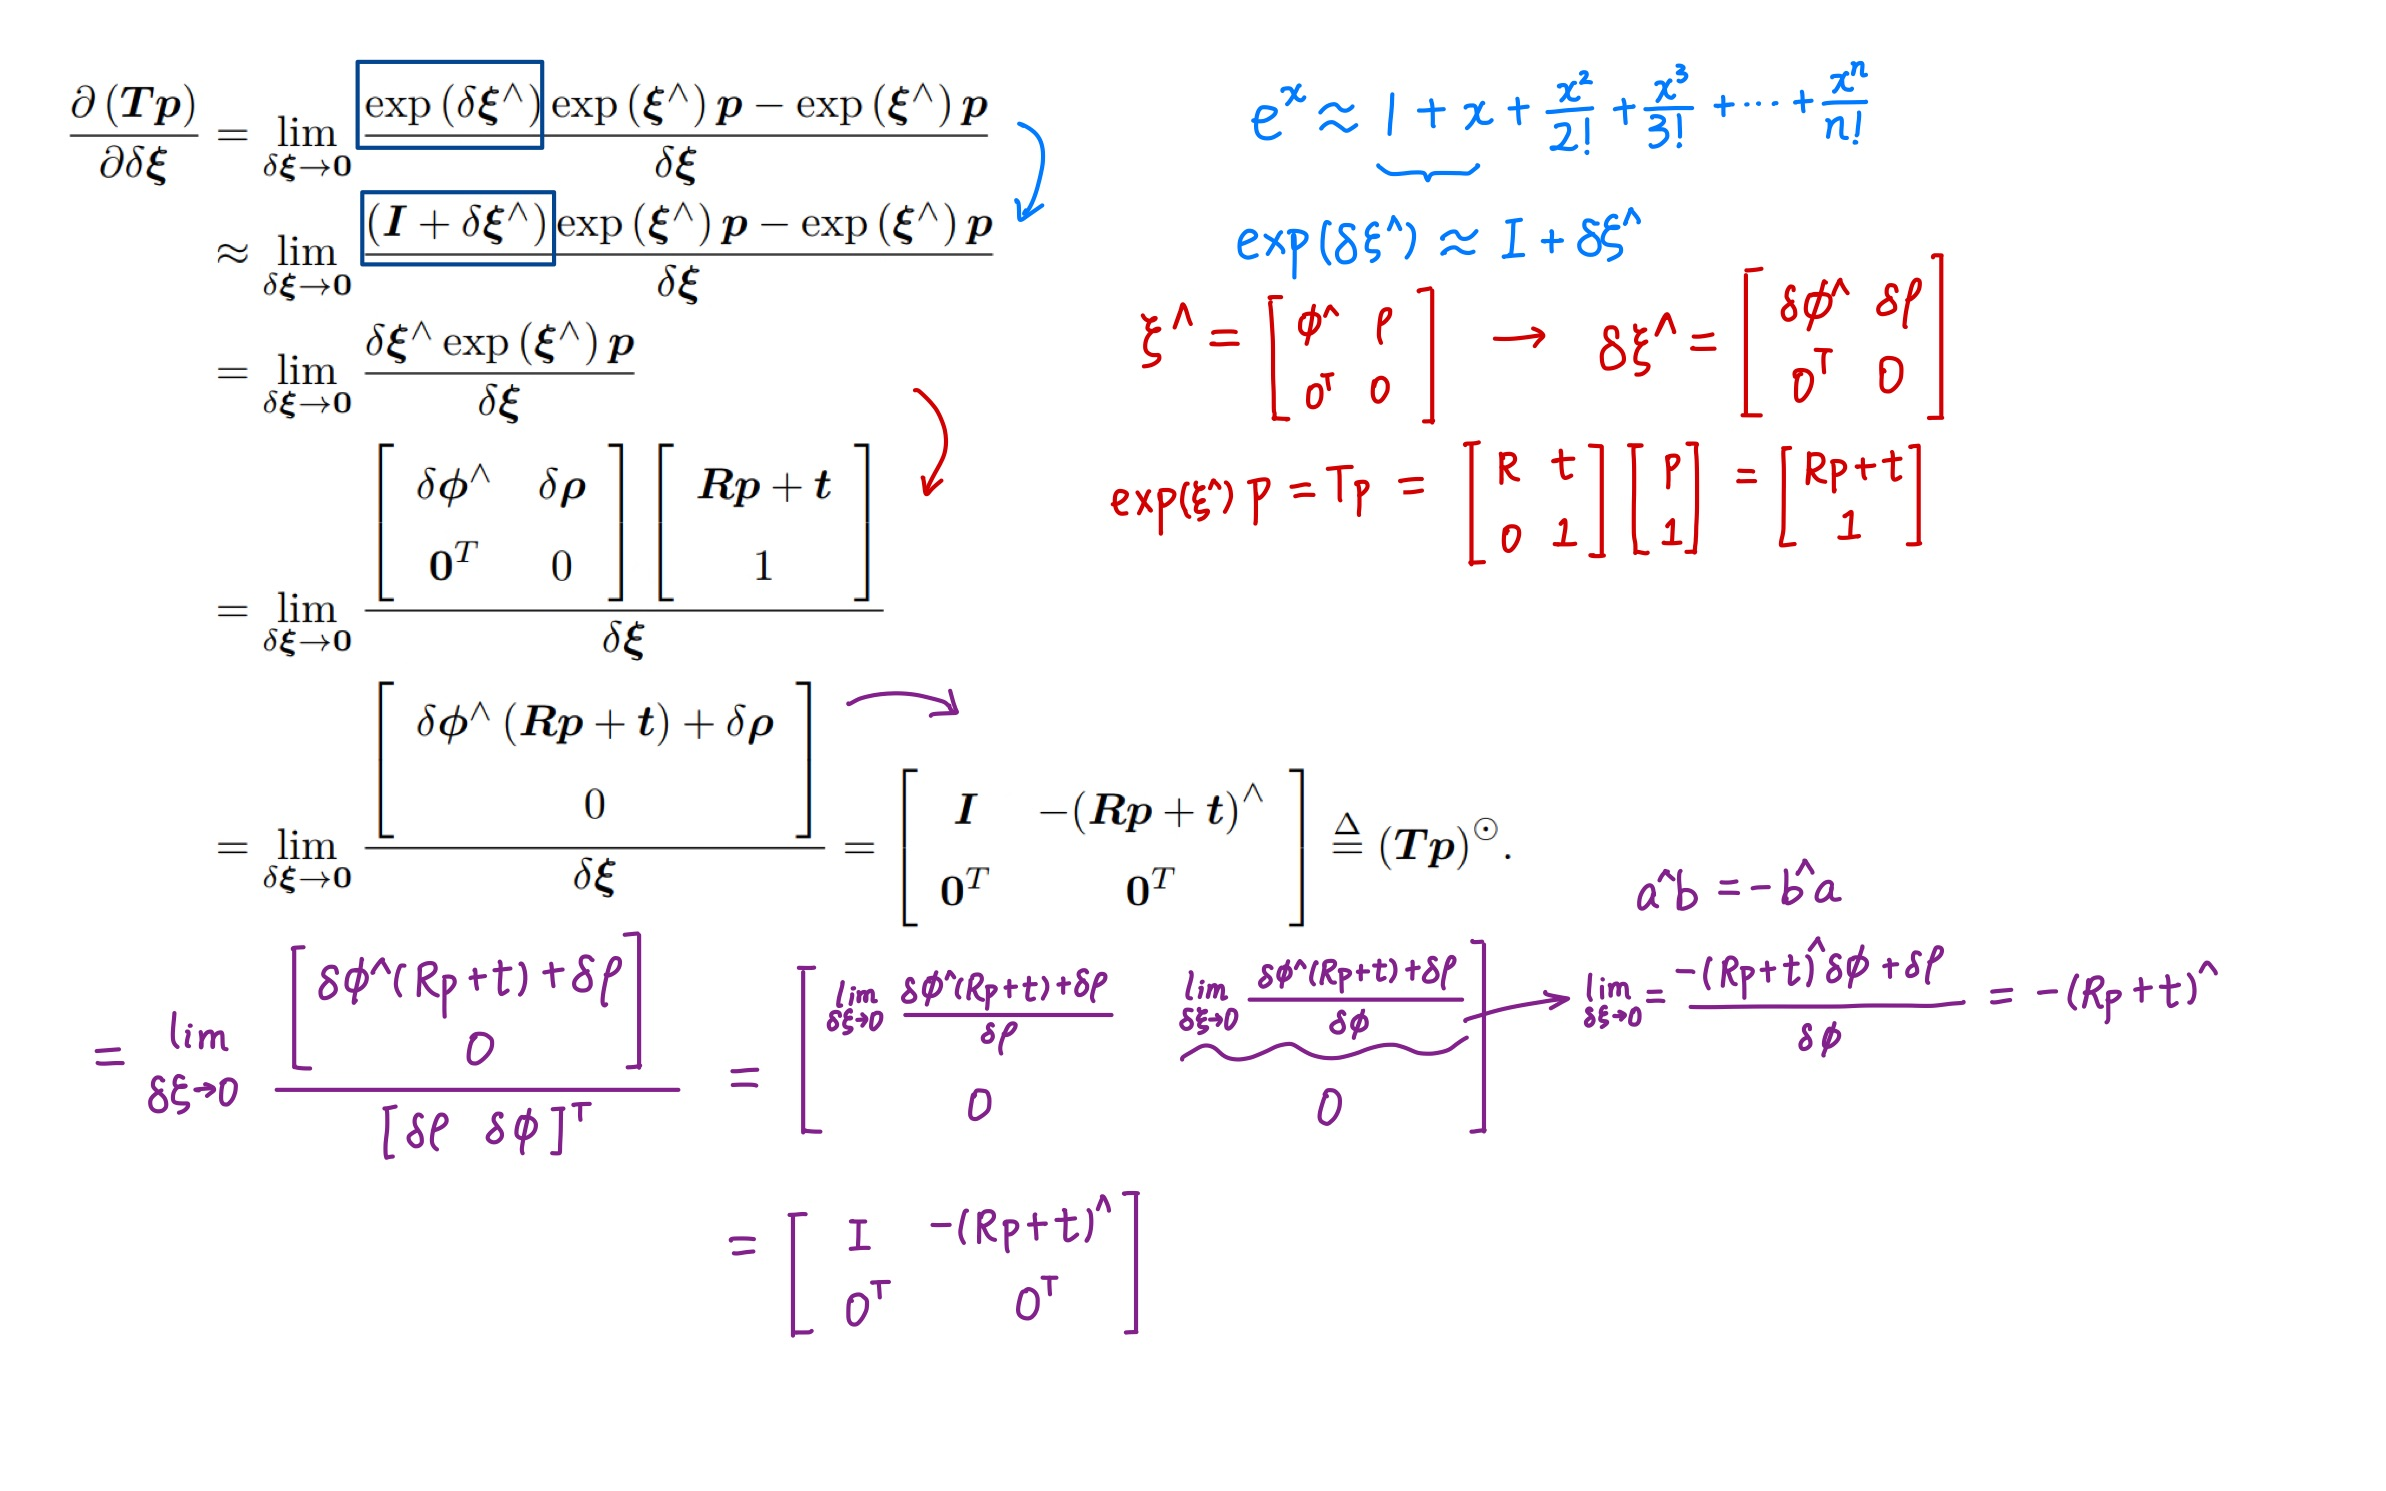 ∂(Tp)/∂δξ = lim_{δξ→0} (exp(δξ^) exp(ξ^) p − exp(ξ^) p) / δξ
≈ lim_{δξ→0} ((I + δξ^) exp(ξ^) p − exp(ξ^) p) / δξ
= lim_{δξ→0} (δξ^ exp(ξ^) p) / δξ
= lim_{δξ→0} [δϕ^ δρ; 0^T 0] [Rp + t; 1] / δξ
= lim_{δξ→0} [δϕ^ (Rp + t) + δρ; 0] / δξ = [I −(Rp + t)^; 0^T 0^T] ≜ (Tp)^⊙.
e^x ≈ 1 + x + x²/2! + x³/3! + ⋯ + x^n/n!
exp(δξ^) ≈ I + δξ^
ξ^ = [ϕ^ ρ; 0^T 0] → δξ^ = [δϕ^ δρ; 0^T 0]
exp(ξ^) p = Tp = [R t; 0 1] [p; 1] = [Rp+t; 1]
a^b = −b^a
= lim_{δξ→0} [δϕ^(Rp+t) + δρ; 0] / [δρ δϕ]^T = [lim_{δξ→0} (δϕ^(Rp+t)+δρ)/δρ lim_{δξ→0} (δϕ^(Rp+t)+δρ)/δϕ; 0 0] → lim_{δξ→0} = (−(Rp+t)^δϕ + δρ)/δϕ = −(Rp+t)^
= [I −(Rp+t)^; 0^T 0^T]